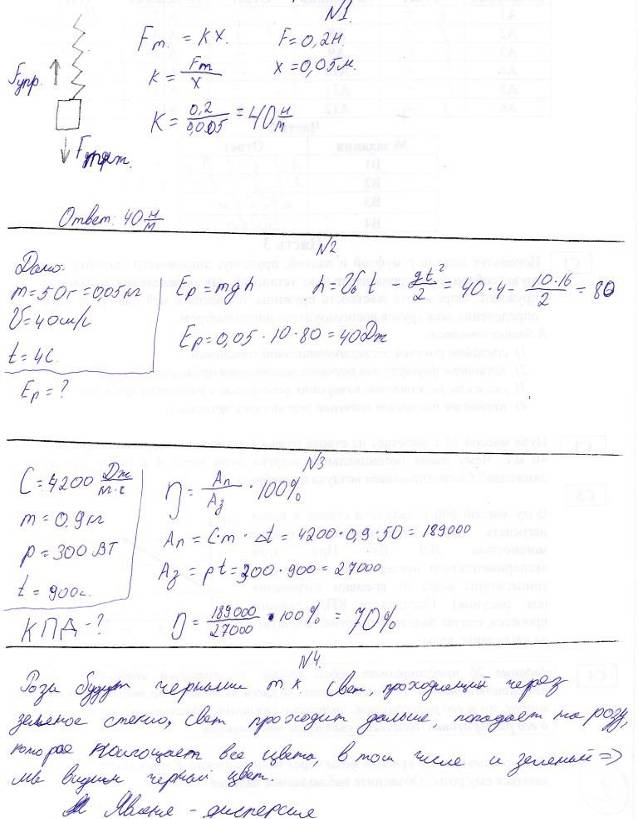 N1
Fт. = KX. F=0,2Н.
K = Fт/X X = 0,05м.
Fупр.
K = 0,2/0,005 = 40 н/м
Ответ: 40 н/м
N2
Дано:
m=50г=0,05кг
V=40м/с
t=4с.
Ep=?
Ep=mgh h=V₀t - gt²/2 = 40·4 - 10·16/2 = 80
Ep=0,05·10·80=40Дж
N3
C=4200 Дж/м·с
m=0.9кг
p=300 Вт
t=900с.
КПД-?
η = Aп/Aз · 100%
Aп = C·m·Δt = 4200·0,9·50 = 189000
Aз = pt=300·900=27000
η = 189000/27000 · 100% = 70%
N4.
Роза будут черными т.к. Свет, проходящий через
зеленое стекло, свет проходит дальше, попадает на розу,
которое поглощает все цвета, в том числе и зеленый =>
мы видим черный цвет.
Явление - дисперсия